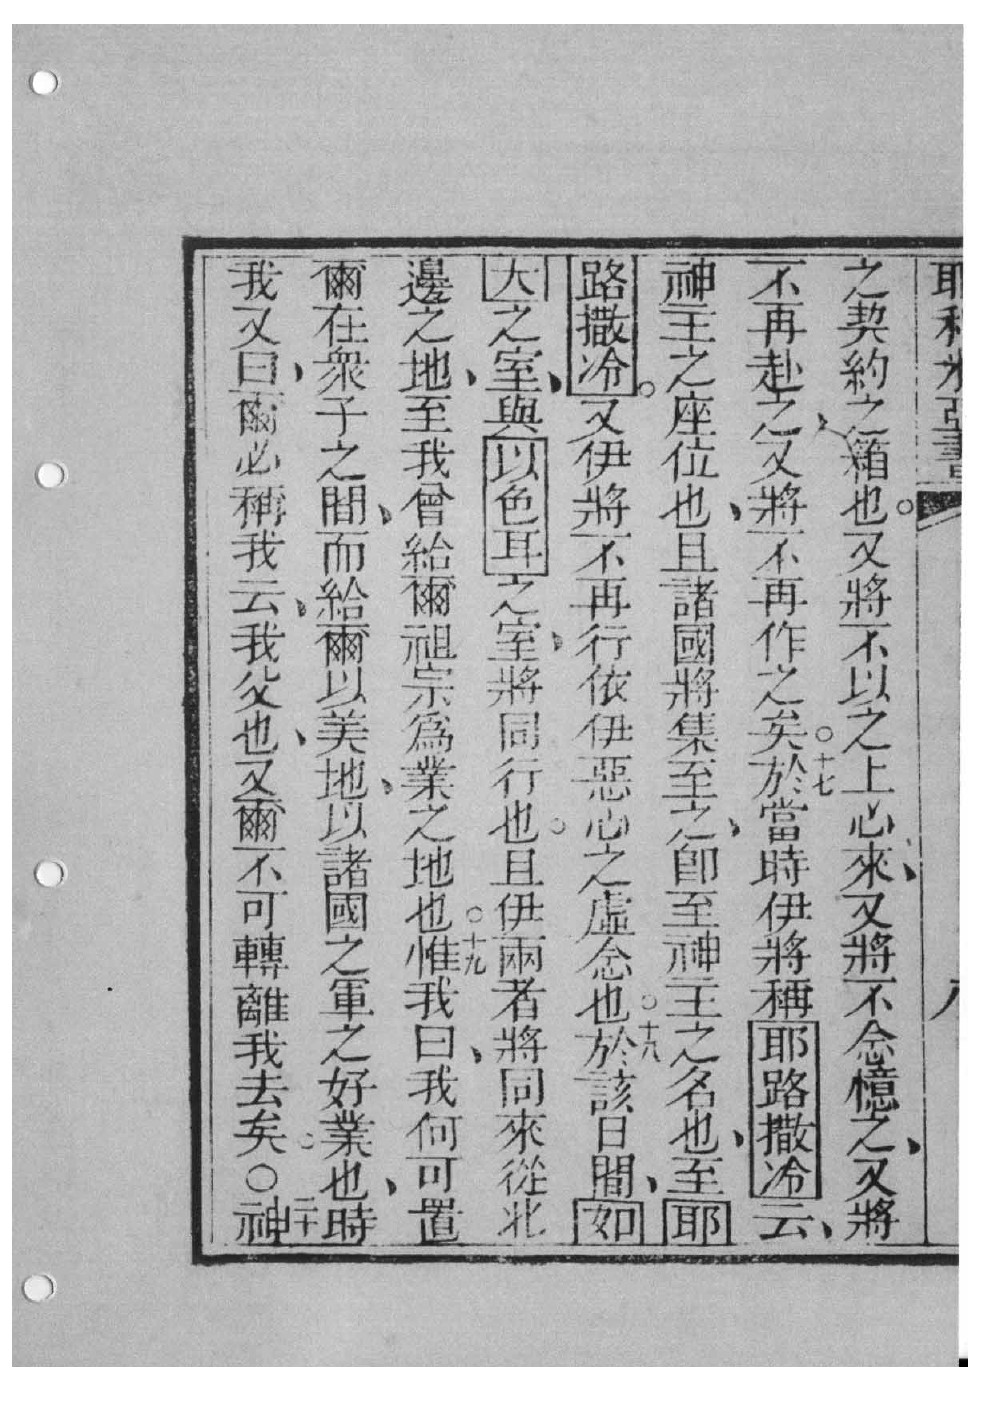 耶利米亞書 八
之契約之箱也。又將不以之上心來、又將不念憶之、又將
不再赴之、又將不再作之矣。十七於當時伊將稱耶路撒冷云、
神主之座位也、且諸國將集至之、卽至神主之名也、至耶
路撒冷。又伊將不再行依伊惡心之虛念也。十八於該日間、如
大之室、與以色耳之室、將同行也。且伊兩者將同來從北
邊之地、至我曾給爾祖宗爲業之地也。十九惟我曰、我何可置
爾在衆子之間、而給爾以美地、以諸國之軍之好業也、時
我又曰、爾必稱我云、我父也、又爾不可轉離我去矣。○二十神